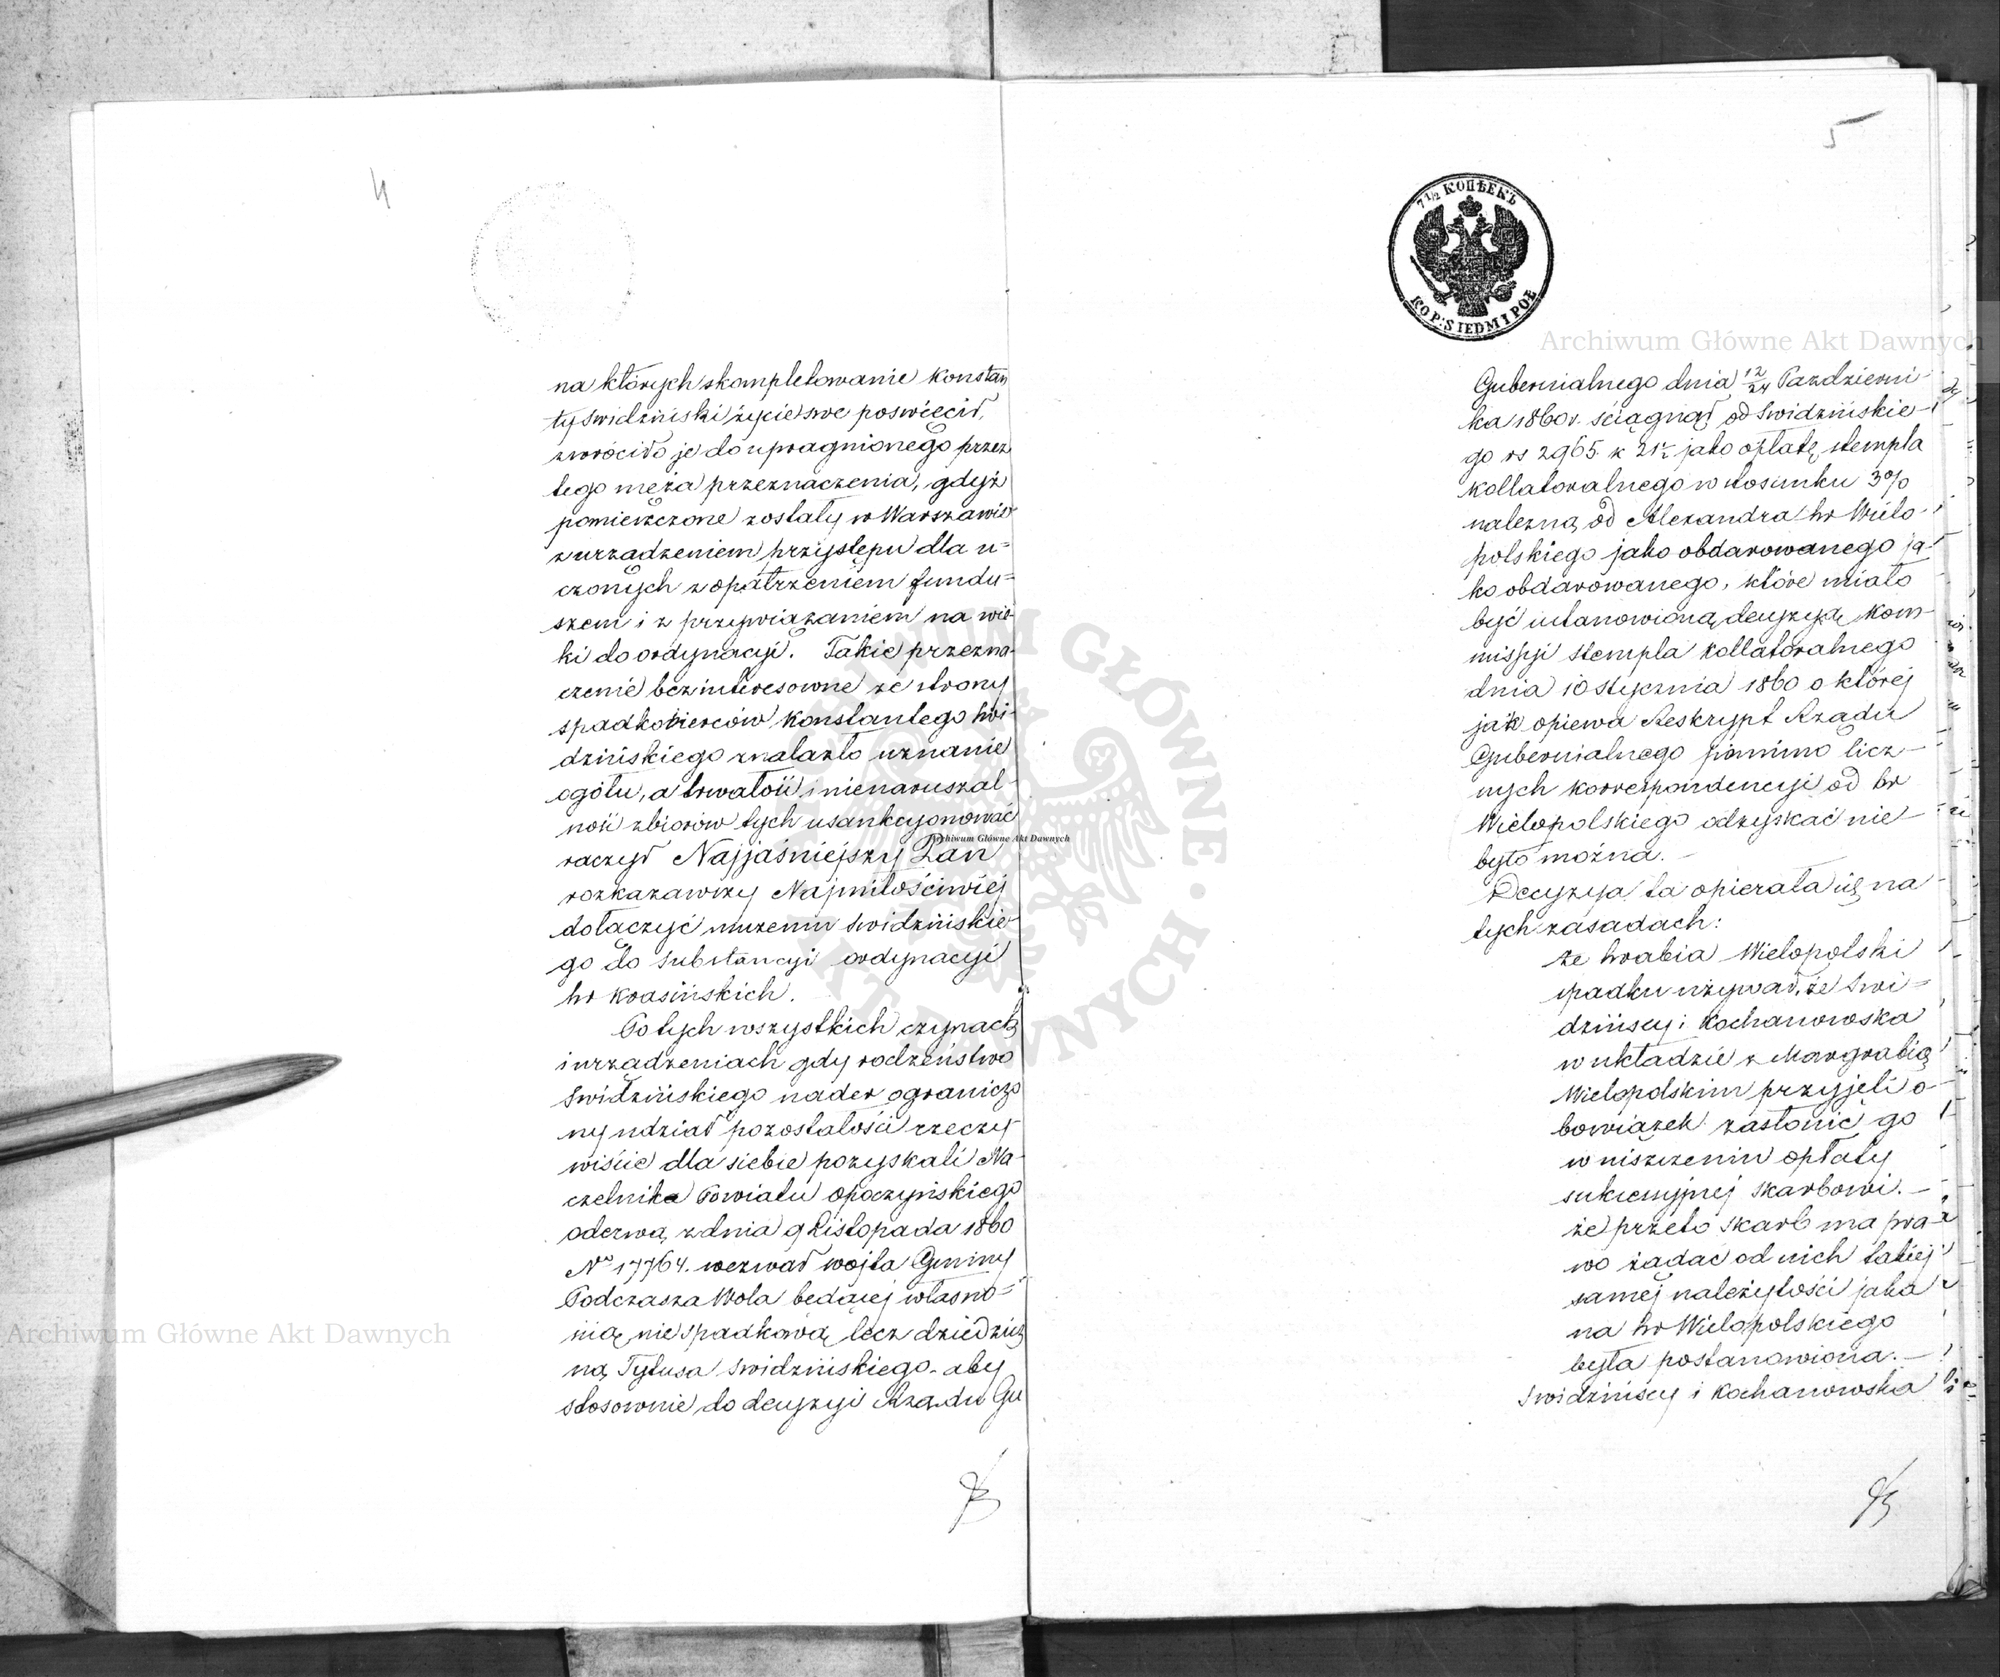 4
na których skompletowanie Konstan
ty Swidziński życie swe poswięcił,
zwróciło je do upragnionego przez
tego męża przeznaczenia, gdyż
pomieszczone zostały w Warszawie
z urządzeniem przystępu dla u=
czonych z opatrzeniem fundu=
szem i z przywiązaniem na wie-
ki do ordynacyi. Takie przezna-
czenie bezinteresowne ze strony
spadkobierców Konstantego Swi-
dzińskiego znalazło uznanie
ogółu, a trwałość i nienaruszal-
ność zbiorów tych usankcyonować
raczył Najjaśniejszy Pan
rozkazawszy Najmiłościwiej
dołaczyć muzeum Swidzińskie-
go do substancyi ordynacyi
hr Krasińskich.
Po tych wszystkich czynach
i urządzeniach gdy rodzeństwo
Swidzińskiego nader ograniczo
ny udział pozostałości rzeczy-
wiście dla siebie pozyskali Na-
czelnik Powiatu opoczyńskiego
odezwą z dnia 9 Listopada 1860
No 17764. wezwał wójta Gminy
Podczasza Wola będącej własno=
ścią nie spadkową lecz dziedzicz
ną Tytusa Swidzińskiego. aby
stosownie do decyzyi Rządu Gu
5
7 1/2 КОПѢЕКЪ
KOP: SIEDM I POŁ
Gubernialnego dnia 12/24 Pazdzierni-
ka 1860 r. ściągnął od Swidzińskie-
go rs 2965 k 21½ jako opłatę stempla
kollateralnego w stosunku 3%
nalezną od Alexandra hr Wielo-
polskiego jako obdarowanego ja-
ko obdarowanego, które miało
być ustanowioną decyzyą Kom-
missyi stempla kollateralnego
dnia 10 stycznia 1860 o której
jak opiewa Reskrypt Rządu
Gubernialnego pomimo licz-
nych korrespondencyi od hr
Wielopolskiego odzyskać nie
było można.
Decyzya ta opierała się na
tych zasadach:
że hrabia Wielopolski
spadku używał, że Swi=
dzińscy i Kochanowska
w układzie z Margrabią
Wielopolskim przyjeli o-
bowiązek zasłonić go
w niszczeniu opłaty
sukcessyjnej Skarbowi.-
że przeto skarb ma pra-
wo żądac od nich takiej
samej należytości jaka
na hr Wielopolskiego
była postanowiona.-
Swidzińscy i Kochanowska
Archiwum Główne Akt Dawnych
Archiwum Główne Akt Dawnych
Archiwum Główne Akt Dawnych
ARCHIWUM GŁÓWNE · AKT DAWNYCH ·